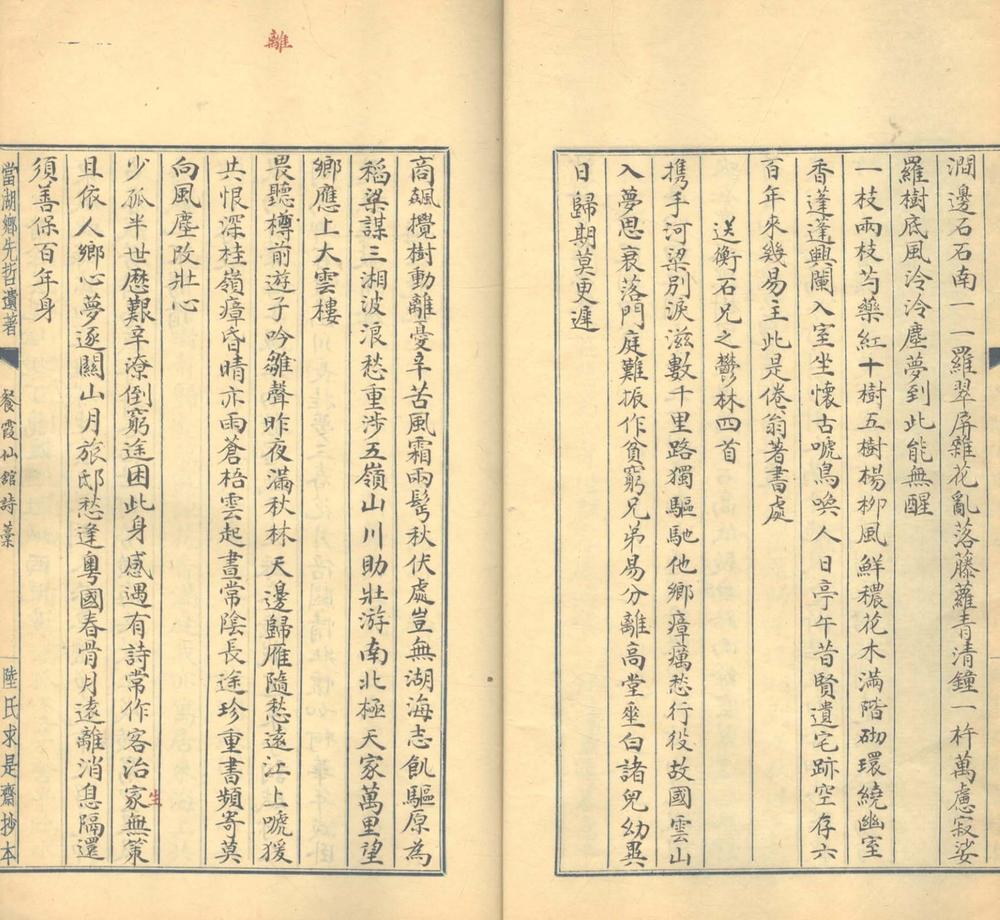 澗邊石石南一一羅翠屏雜花亂落藤蘿青清鐘一杵萬慮寂娑
羅樹底風泠泠塵夢到此能無醒
一枝兩枝芍藥紅十樹五樹楊柳風鮮穠花木滿階砌環繞幽室
香蓬蓬興闌入室坐懷古唬鳥喚人日亭午昔賢遺宅跡空存六
百年來幾易主此是倦翁著書處
送衡石兄之鬱林四首
携手河梁別淚滋數千里路獨驅馳他鄉瘴癘愁行役故國雲山
入夢思衰落門庭難振作貧窮兄弟易分離高堂垂白諸兒幼異
日歸期莫更遲
離
商飆攪樹動離憂辛苦風霜兩髩秋伏處豈無湖海志飢驅原為
稻粱謀三湘波浪愁重涉五嶺山川助壯游南北極天家萬里望
鄉應上大雲樓
畏聽樽前遊子吟雛聲昨夜滿秋林天邊歸雁隨愁遠江上唬猨
共恨深桂嶺瘴昏晴亦雨蒼梧雲起晝常陰長途珍重書頻寄莫
向風塵改壯心
少孤半世歷艱辛潦倒窮途困此身感遇有詩常作客治家無策
生
且依人鄉心夢逐關山月旅邸愁逢粵國春骨月遠離消息隔還
須善保百年身
當湖鄉先哲遺著
餐霞仙館詩藁
陸氏求是齋抄本